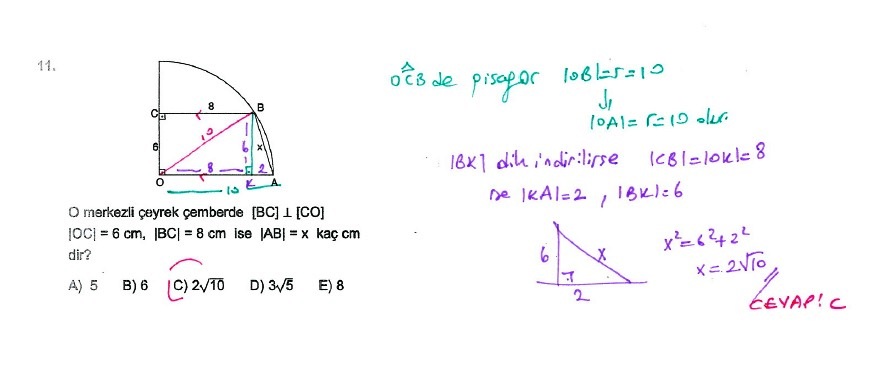 11.
C
8
B
10
6
6
x
8
2
O
K
A
10
O merkezli çeyrek çemberde [BC] ⊥ [CO]
|OC| = 6 cm, |BC| = 8 cm ise |AB| = x kaç cm
dir?
A) 5 B) 6 C) 2√10 D) 3√5 E) 8
OCB de pisagor |OB|=r=10
⇓
|OA|= r=10 olur.
|BK| dik indirilirse |CB|=|OK|=8
ve |KA|=2 , |BK|=6
6
x
2
x²=6²+2²
x=2√10
CEVAP: C